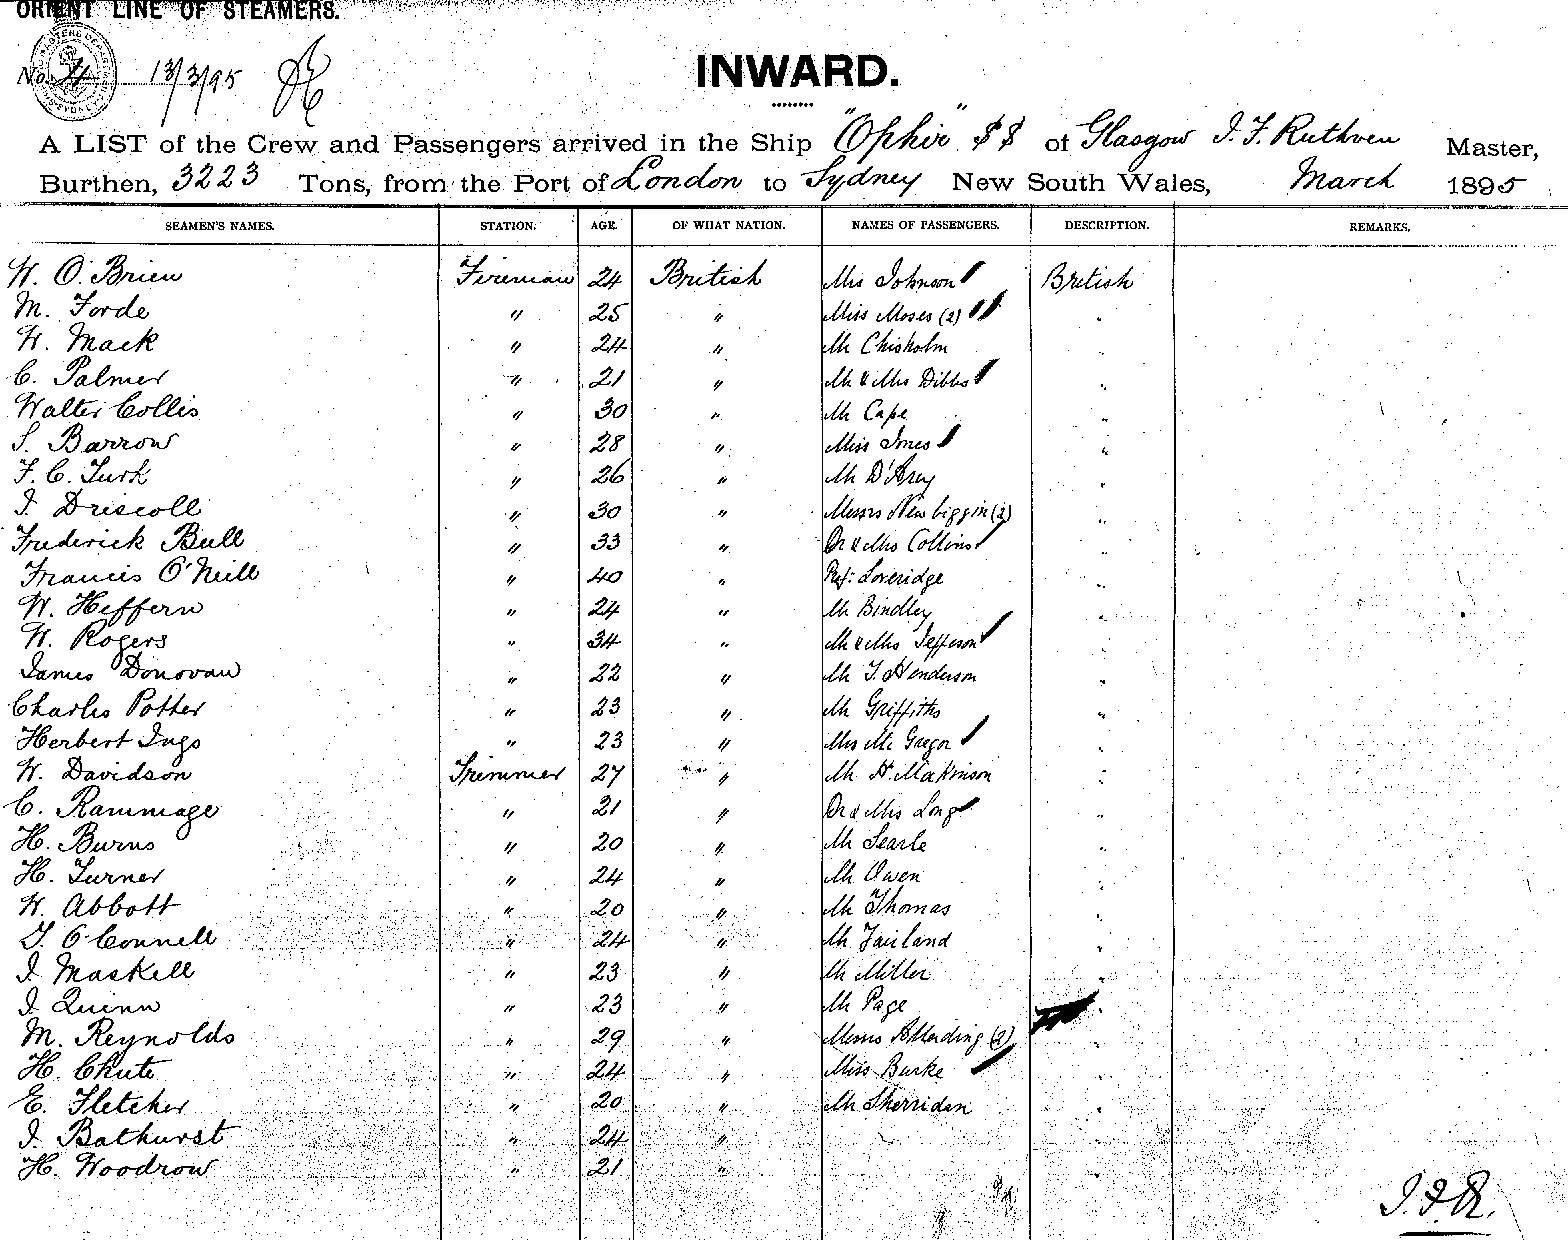 ORIENT LINE OF STEAMERS.
No. 4 13/3/95
INWARD.
A LIST of the Crew and Passengers arrived in the Ship "Ophir" SS of Glasgow J. F. Ruthven Master,
Burthen, 3223 Tons, from the Port of London to Sydney New South Wales, March 1895
SEAMEN'S NAMES. STATION. AGE. OF WHAT NATION. NAMES OF PASSENGERS. DESCRIPTION. REMARKS.
W. O'Brien Fireman 24 British Mrs Johnson British
M. Forde " 25 " Miss Moses (2) "
W. Mack " 24 " Mr Chisholm "
C. Palmer " 21 " Mr & Mrs Dibbs "
Walter Collis " 30 " Mr Cape "
S. Barrow " 28 " Miss Innes "
F. C. Turk " 26 " Mr D'Arcy "
J. Driscoll " 30 " Messrs Newbiggin (2) "
Frederick Bull " 33 " Dr & Mrs Collins "
Francis O'Neill " 40 " Prof: Loveridge "
W. Heffern " 24 " Mr Bindley "
W. Rogers " 34 " Mr & Mrs Jefferson "
James Donovan " 22 " Mr T. Henderson "
Charles Potter " 23 " Mr Griffiths "
Herbert Ings " 23 " Mrs Mc Gregor "
W. Davidson Trimmer 27 " Mr H. Makinson "
C. Rammage " 21 " Dr & Mrs Long "
H. Burns " 20 " Mr Searle "
H. Turner " 24 " Mr Owen "
W. Abbott " 20 " Mr Thomas "
T. O'Connell " 24 " Mr Fairland "
J. Maskell " 23 " Mr Miller "
J. Quinn " 23 " Mr Page "
M. Reynolds " 29 " Messrs (2) "
H. Chute " 24 " Miss Burke "
E. Fletcher " 20 " Mr Sherridan "
J. Bathurst " 24 " "
H. Woodrow " 21 " "
J. F. R.